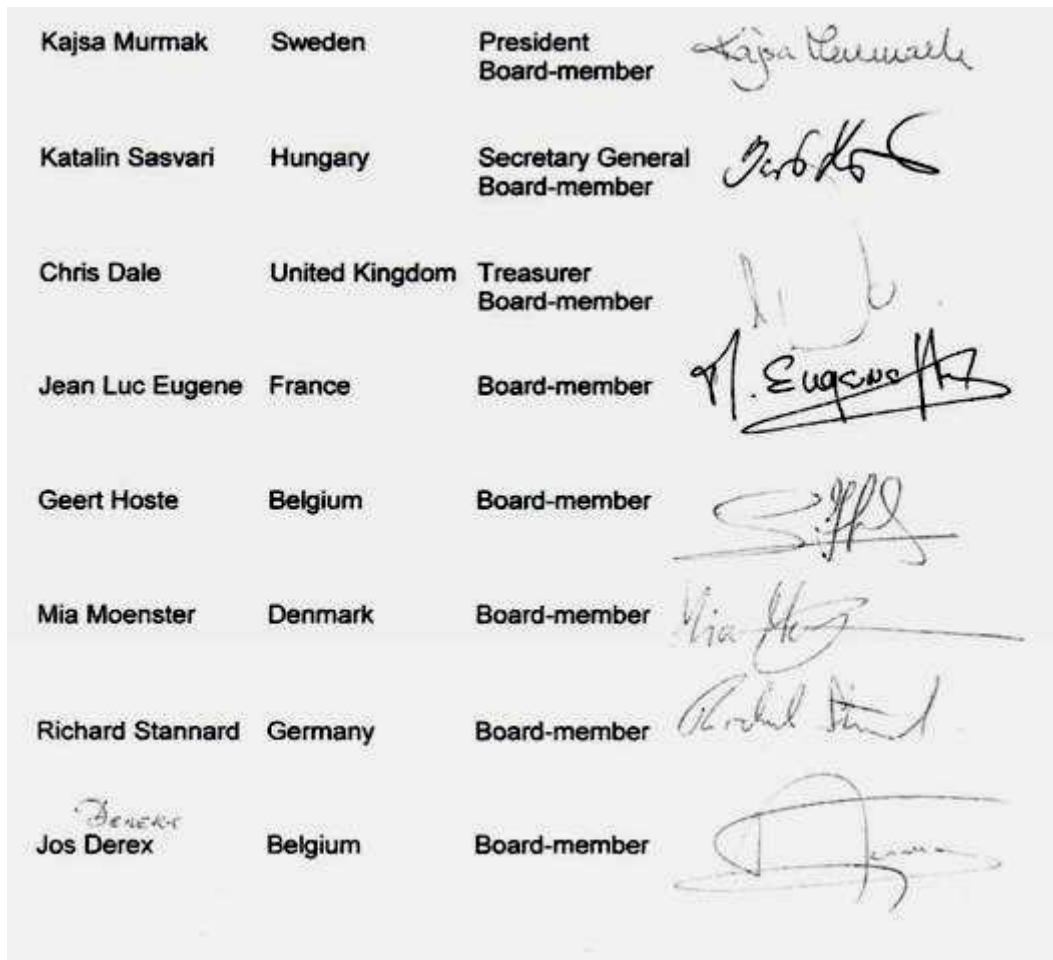 Kajsa Murmak Sweden President Kajsa Murmak
Board-member
Katalin Sasvari Hungary Secretary General
Board-member
Chris Dale United Kingdom Treasurer
Board-member
Jean Luc Eugene France Board-member M. Eugene
Geert Hoste Belgium Board-member
Mia Moenster Denmark Board-member Mia
Richard Stannard Germany Board-member Richard
Jos Derex Belgium Board-member